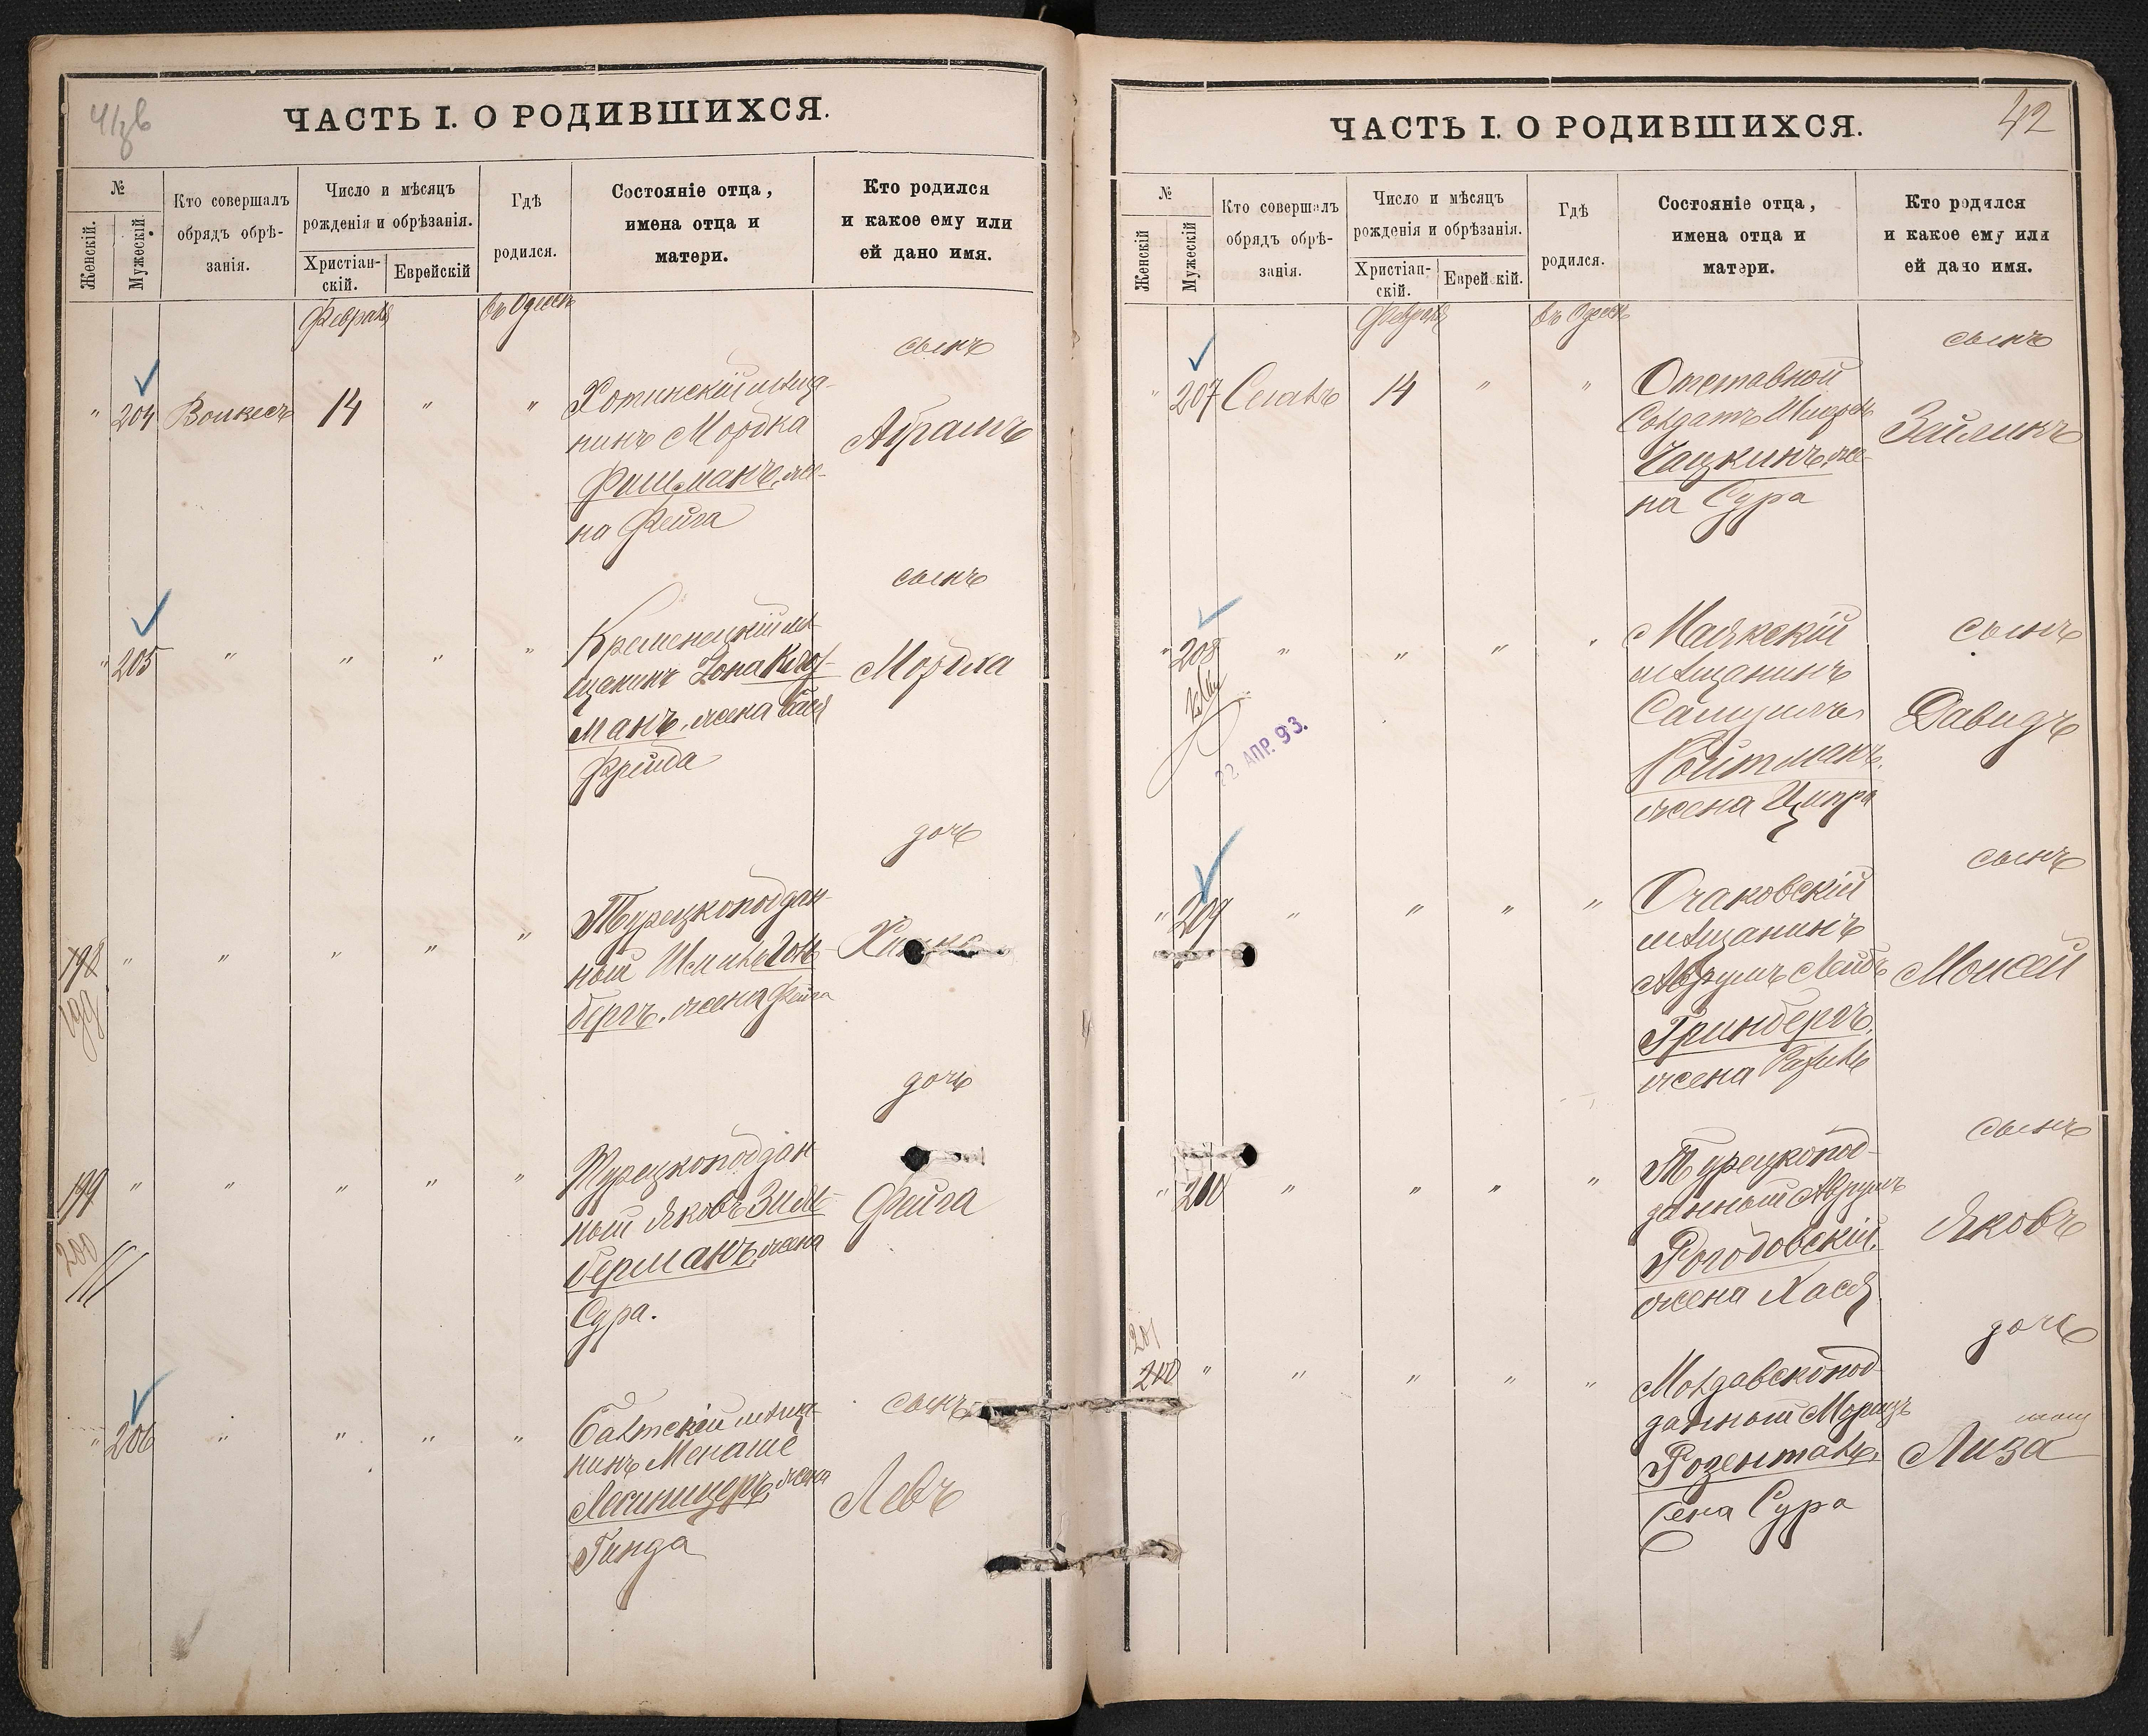 ЧАСТЬ I. О РОДИВШИХСЯ.
№
Женскій.
Мужескій
Кто совершалъ
обрядъ обрѣ-
занія.
Число и мѣсяцъ
рожденія и обрѣзанія.
Христіан-
скій.
Еврейскій
Гдѣ
родился.
Состояніе отца,
имена отца и
матери.
Кто родился
и какое ему или
ей дано имя.
Февраля
въ Одессѣ
сынъ
" 204 14 " "
Хотинскій мѣща-
нинъ Мордка
Фишманъ, же-
на Фейга
Абрамъ
сынъ
" 205 " " " "
Кременецкій мѣ-
щанинъ
манъ, жена Бася
Фрейда
Мордка
дочь
198 " " " " "
199
Турецкоподдан-
ный
бергъ, жена Фейга
дочь
199 " " " " "
200
Турецкоподдан-
ный Яковъ Зиль-
берманъ, жена
Сура.
Фейга
сынъ
" 206 " " " "
Балтскій мѣща-
нинъ Менаше
жена
Гинда
Левъ
ЧАСТЬ I. О РОДИВШИХСЯ.
42
№
Женскій
Мужескій
Кто совершалъ
обрядъ обрѣ-
занія.
Число и мѣсяцъ
рожденія и обрѣзанія.
Христіан-
скій.
Еврейскій.
Гдѣ
родился.
Состояніе отца,
имена отца и
матери.
Кто родился
и какое ему или
ей дано имя.
Февраля
въ Одессѣ
сынъ
" 207 14 " "
Отставной
Солдатъ
Чацкинъ, же-
на Сура
Зейликъ
сынъ
" 208 " " " "
22 АПР. 93.
Маякскій
мѣщанинъ
Самуилъ
Ройтманъ,
жена Ципра
Давидъ
сынъ
" 209 " " " "
Очаковскій
мѣщанинъ
Аврумъ Лейбъ
Гринбергъ,
жена Рахиль
Моисей
сынъ
" 210 " " " "
Турецкопод-
данный Аврумъ
Рогодовскій,
жена Хася
Яковъ
дочь
201
200 " " " " "
Молдавскопод-
данный Морицъ
Розенталь,
жена Сура
Лиза